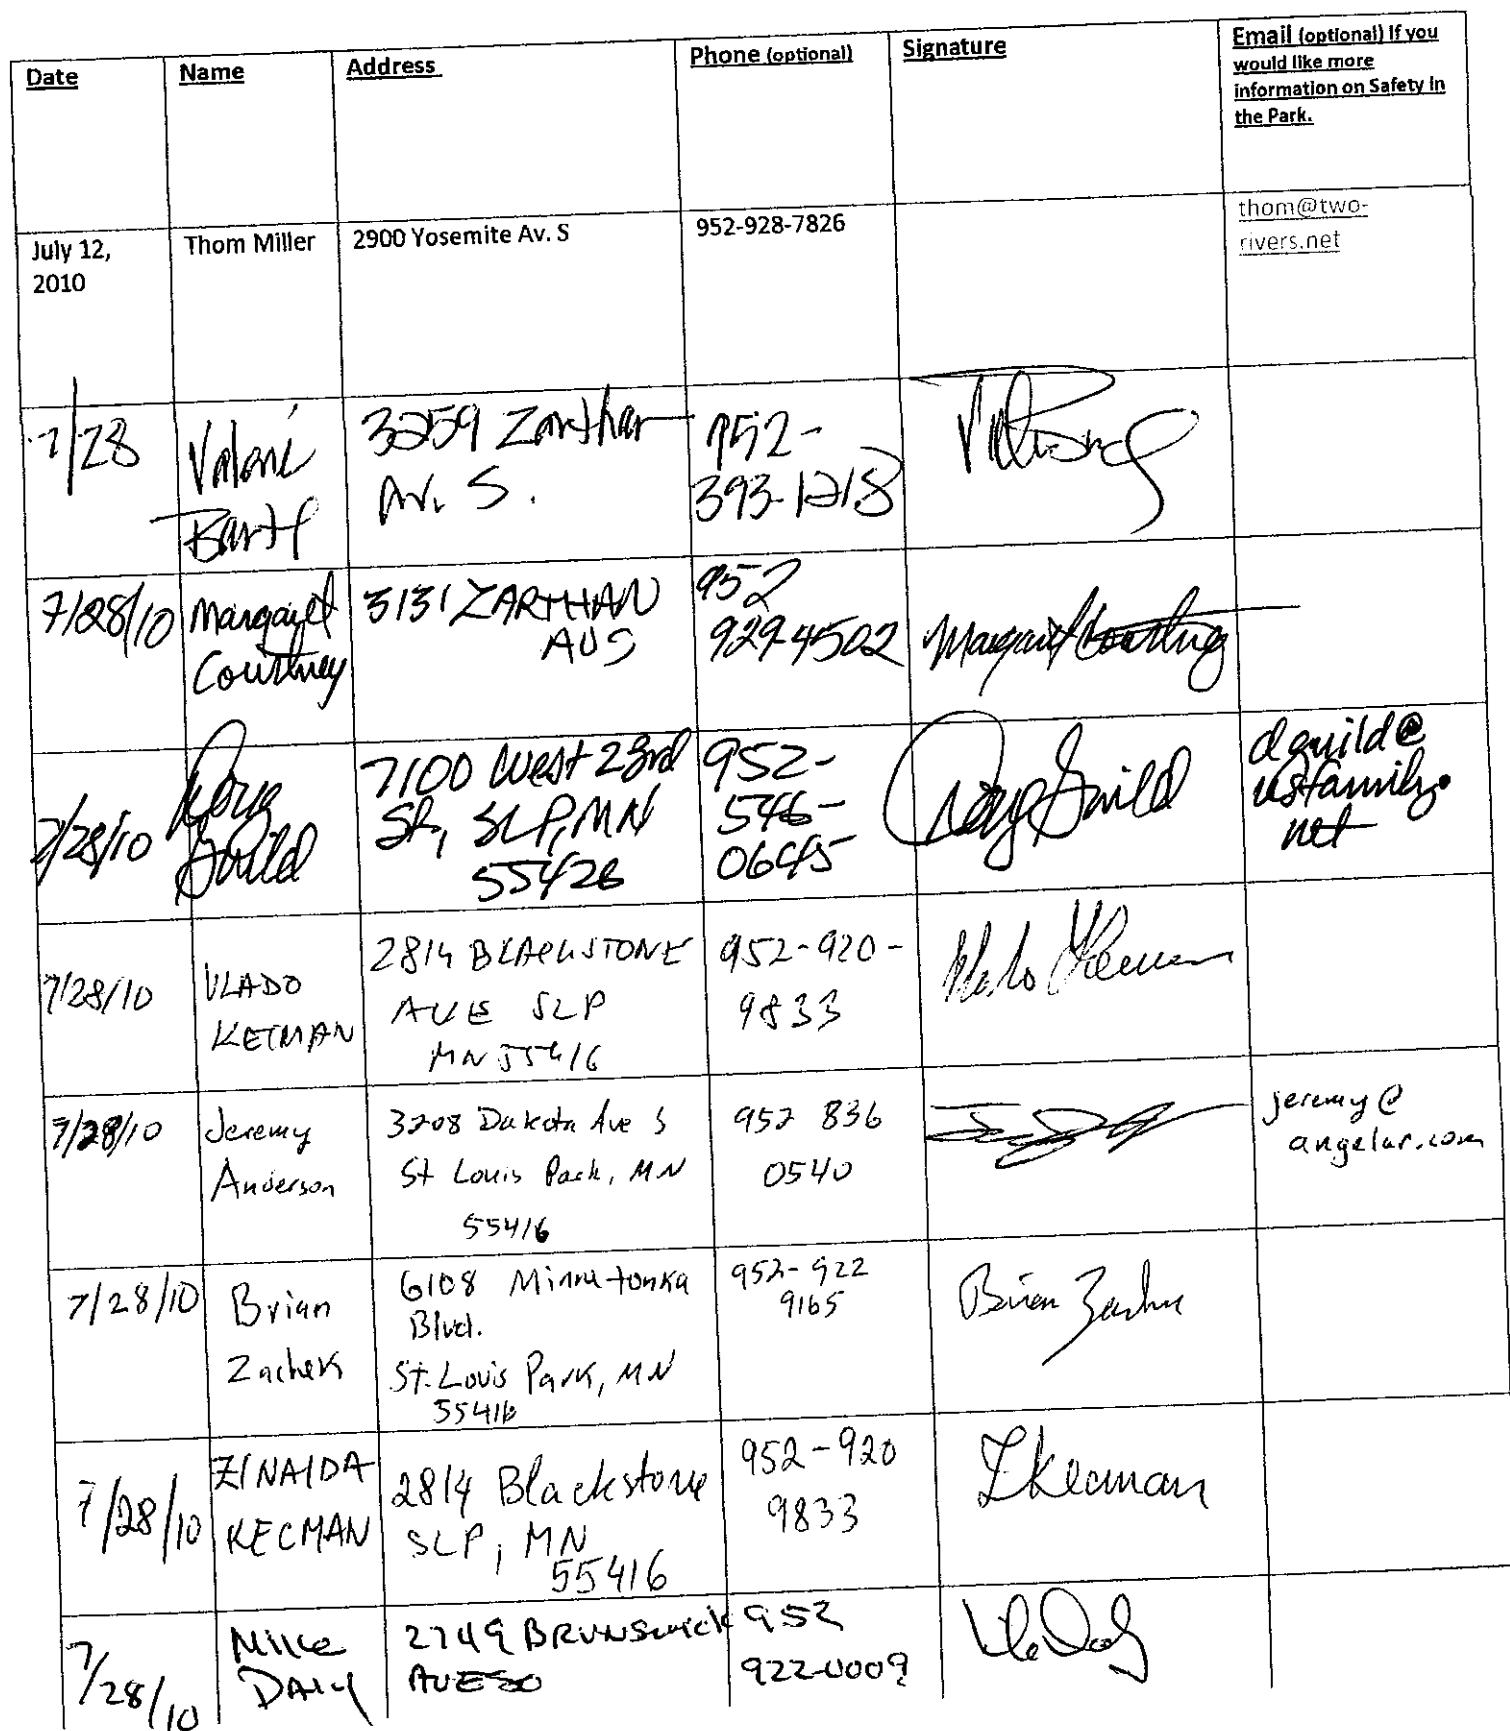 Date
Name
Address
Phone (optional)
Signature
Email (optional) If you
would like more
information on Safety in
the Park.
July 12,
2010
Thom Miller
2900 Yosemite Av. S
952-928-7826
thom@two-
rivers.net
7/28
3259 Zarthan
Av. S.
952-
393-1218
7/28/10
Margaret
Courtney
3131 ZARTHAN
AV S
952
929-4502
Margaret Courtney
7/28/10
Doug
Guild
7100 West 23rd
St, SLP, MN
55426
952-
546-
0645
Doug Guild
dguild@
usfamily.
net
7/28/10
VLADO
KECMAN
2814 BLACKSTONE
AVE SLP
MN 55416
952-920-
9833
Vlado Kecman
7/28/10
Jeremy
Anderson
3208 Dakota Ave S
St Louis Park, MN
55416
952 836
0540
jeremy@
7/28/10
Brian
Zachek
6108 Minnetonka
Blvd.
St. Louis Park, MN
55416
952-922
9165
Brian Zachek
7/28/10
ZINAIDA
KECMAN
2814 Blackstone
SLP, MN
55416
952-920
9833
ZKecman
7/28/10
Mike
DALY
2749 BRUNSWICK
AVE SO
952
922-0009